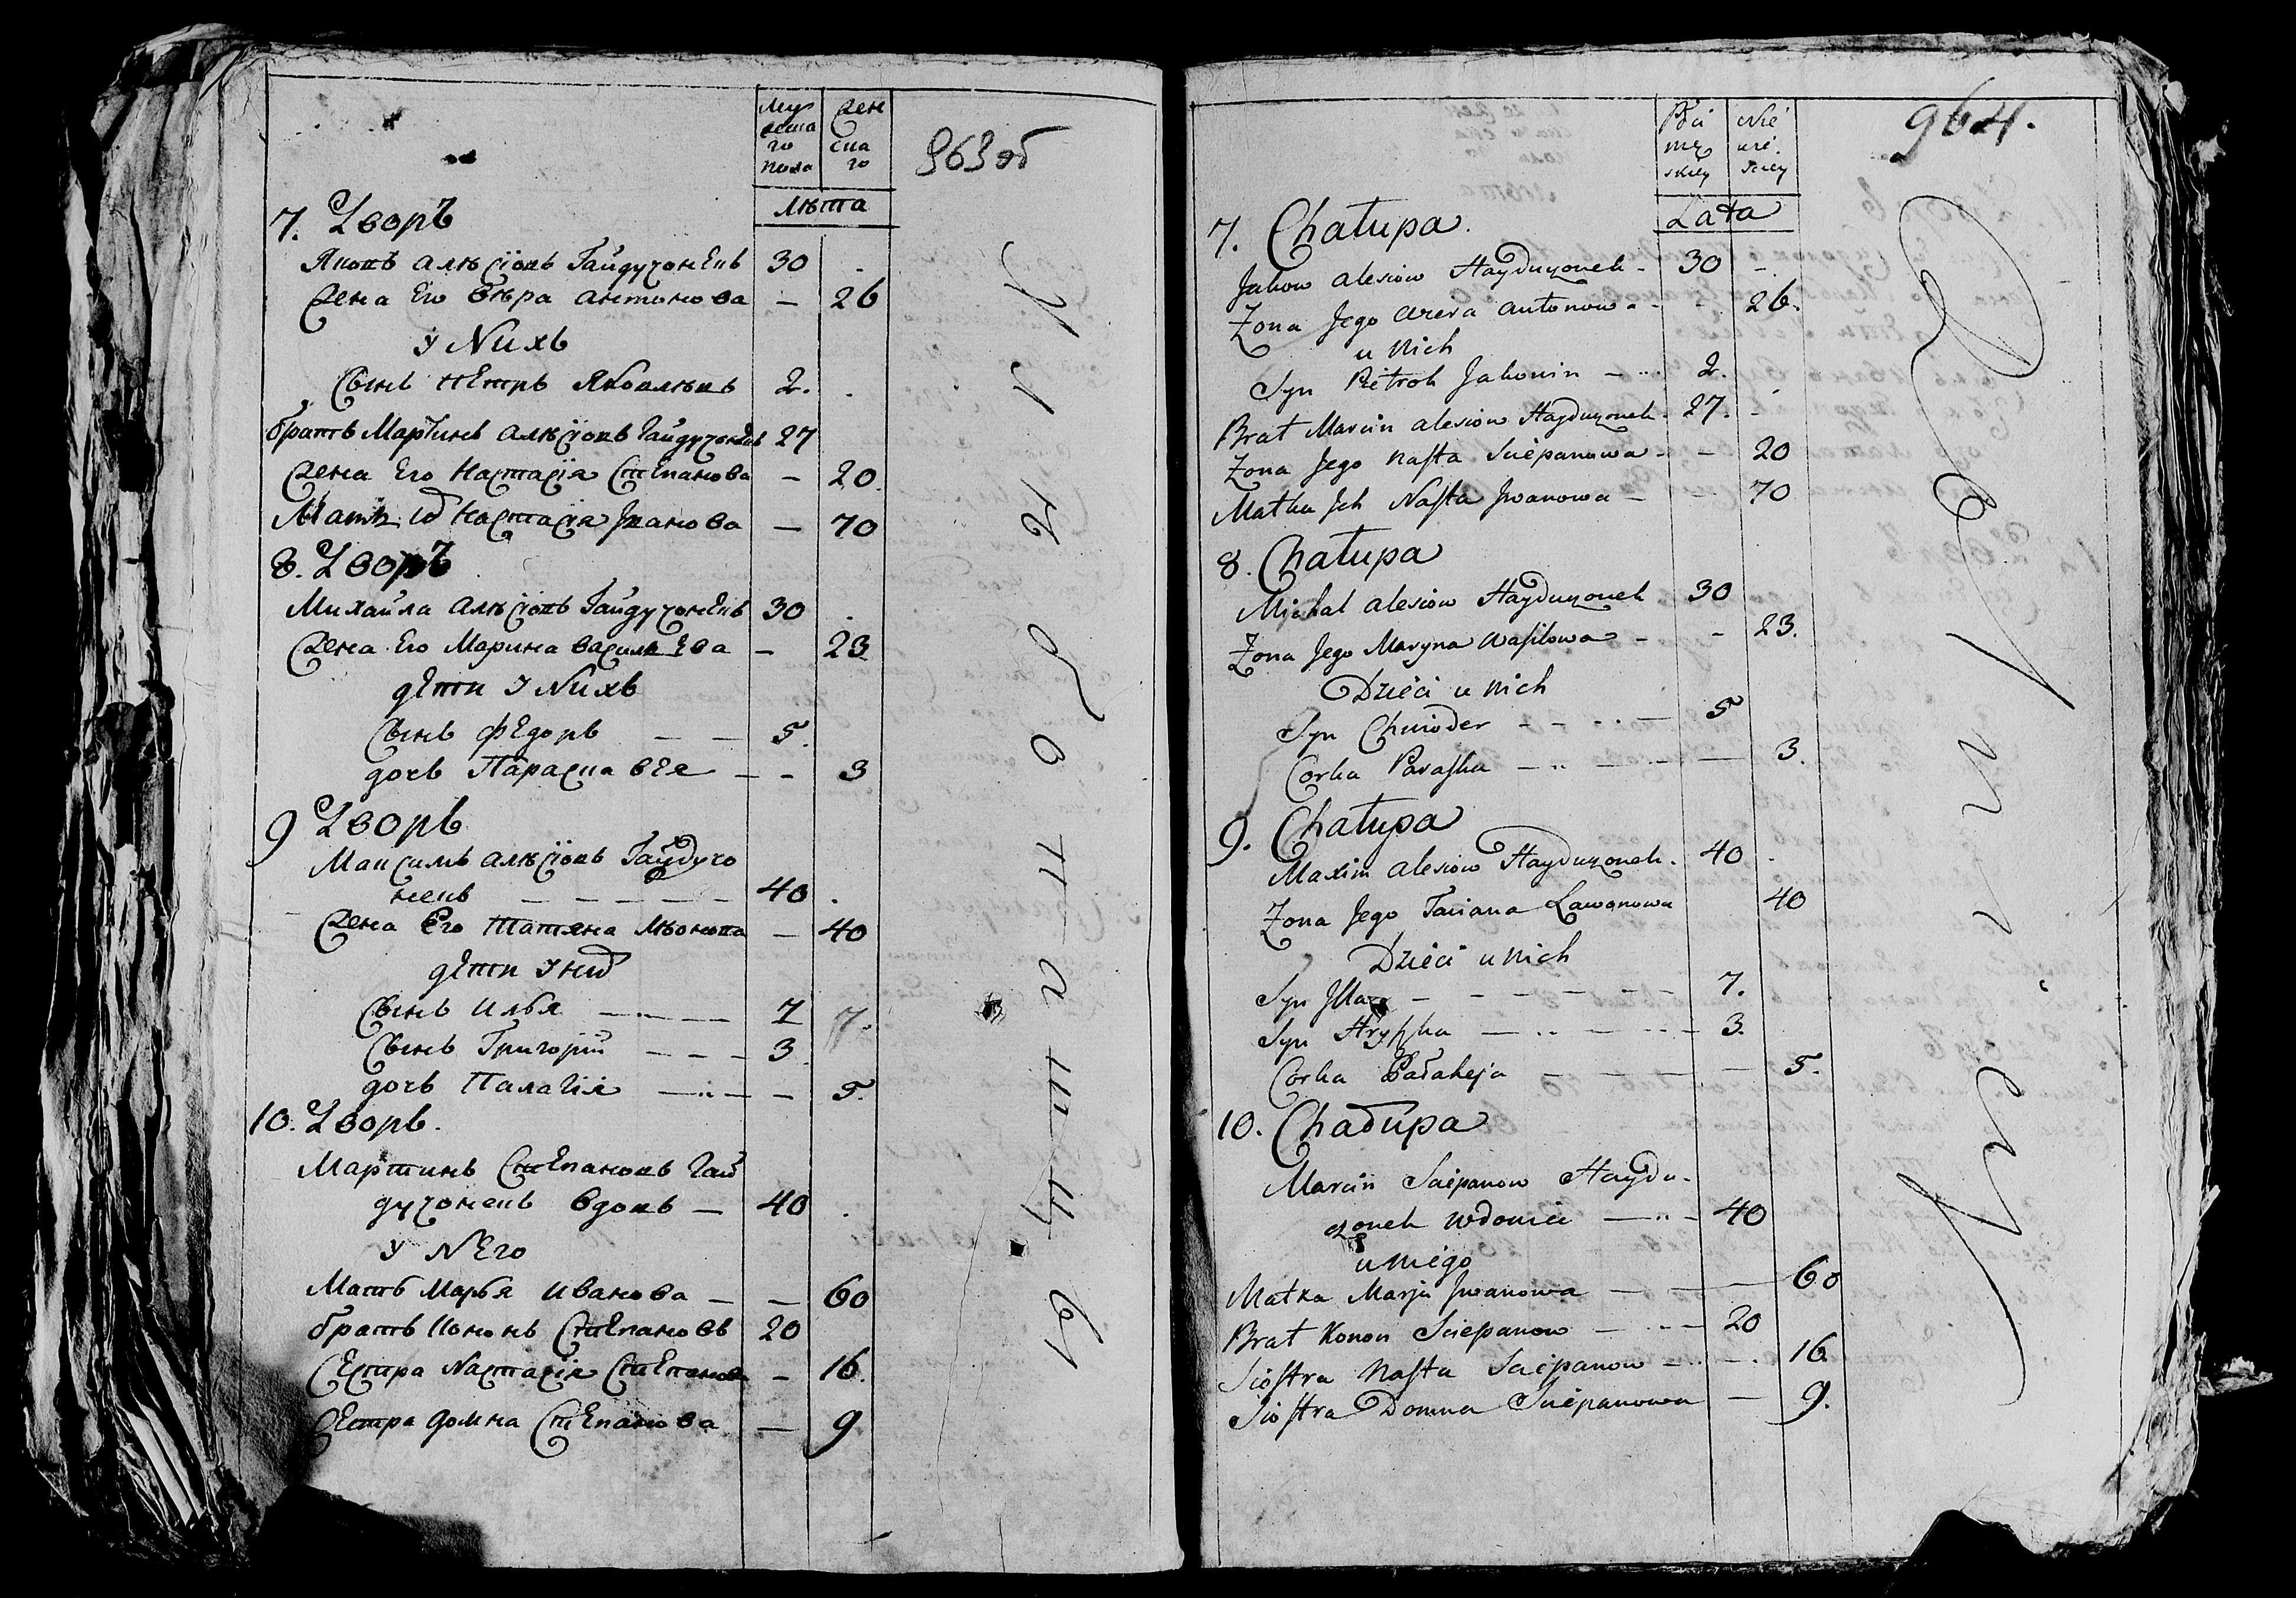 Муже
ска
го
пола
Жен
ска
го
963 об
лѣта
7. Дворъ
Яковъ Алѣсіовъ Гайдучонекъ 30
Жена Его Вѣра Антонова — 26
У Nихъ
Сынъ Петръ Яковлевъ 2.
братъ Мартинъ Алѣсіовъ Гайдучонекъ 27
Жена Его Настасія Степанова — 20
Мать их Настасія Іванова — 70
8. Дворъ
Михайла Алѣсіовъ Гайдучонекъ 30
Жена Его Марина Василева — 23
дѣти У Nихъ
Сынъ Федоръ — — 5.
дочь Параска — — 3
9 Дворъ
Максимъ Алѣсіовъ Гайдучо
некъ — — — — — 40
Жена Его Татяна — 40
дѣти У них
Сынъ Илья — — — 7 7.
Сынъ Григорій — — — 3
дочь Палагія — — — 5.
10. Дворъ.
Мартинъ Степановъ Гай
дучонекъ вдовъ — 40
У Nего
Мать Марья Иванова — — 60
братъ Кононъ Степановъ 20
Сестра Nастасія Степанова — 16.
Сестра Домна Степанова — 9.
964.
Męz
skiey
Nie
wie.
sciey
Lata
7. Chałupa.
Jakow Alesiow Hayduczonek - 30 -
Zona Jego Wiera Antonowa - - 26.
u Nich
Syn Pietrok Jakowin — 2.
Brat Marcin Alesiow Hayduczonek. 27.
Zona Jego Nasta Sciepanowa - — 20
Matka Jch Nasta Jwanowa — — 70
8. Chałupa
Michał Alesiow Hayduczonek 30
Zona Jego Maryna Wasilowa - - 23.
Dzieci u Nich
Syn Chwioder - - - — 5
Corka Paraska — - — — 3.
9. Chałupa
Maxim Alesiow Hayduczonek. 40
Zona Jego Taciana Lawonowa 40
Dzieci u Nich
Syn Jlla — — — — — 7.
Syn Hryszka — - — - 3.
Corka Pałaheja — — — — — 5.
10. Chałupa
Marcin Sciepanow Haydu-
czonek wdowiec — - 40
u Niego
Matka Marja Jwanowa — — — 60
Brat Konon Sciepanow — - — 20
Siostra Nasta Sciepanow — - — 16.
Siostra Domna Sciepanowa — 9.